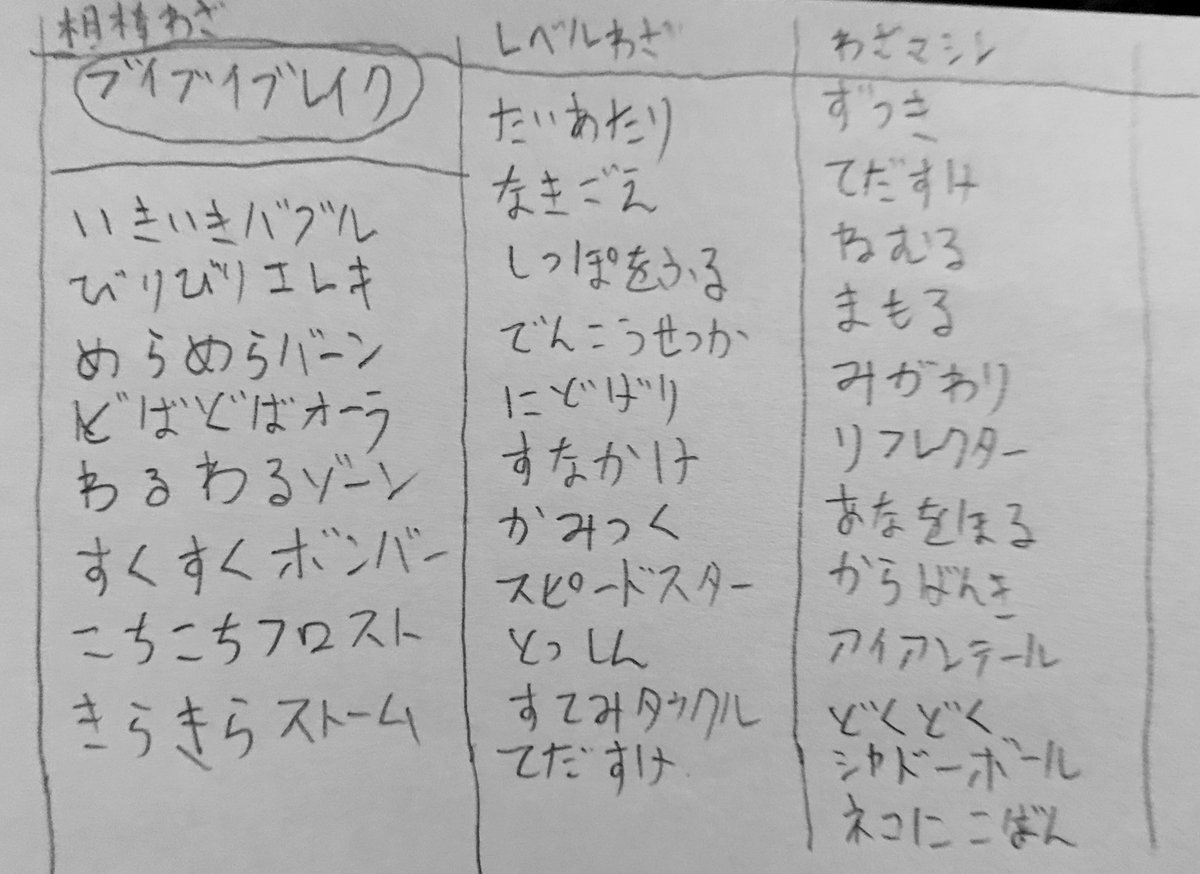 相棒わざ
ブイブイブレイク
いきいきバブル
びりびりエレキ
めらめらバーン
どばどばオーラ
わるわるゾーン
すくすくボンバー
こちこちフロスト
きらきらストーム
レベルわざ
たいあたり
なきごえ
しっぽをふる
でんこうせっか
にどげり
すなかけ
かみつく
スピードスター
とっしん
すてみタックル
てだすけ
わざマシン
ずつき
てだすけ
ねむる
まもる
みがわり
リフレクター
あなをほる
からげんき
アイアンテール
どくどく
シャドーボール
ネコにこばん